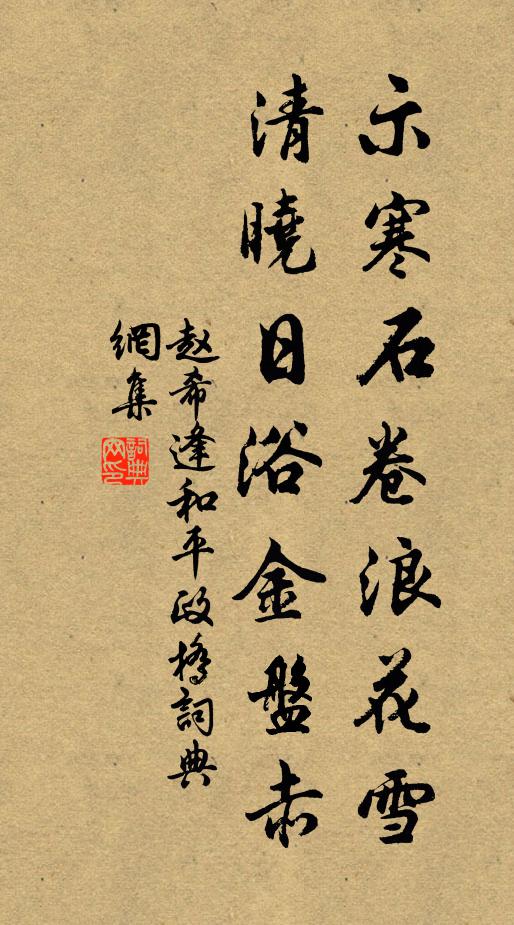 示寒石卷浪花雪
清曉日浴金盤赤
赵希逢和平政橋詞典
網集
詞典網印